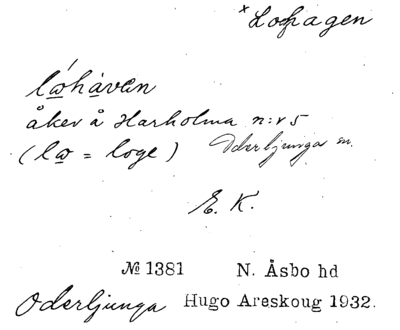 ×Lohagen
låhàven
åker å Harholma n:r 5
(lå = loge) Oderljunga sn.
E. K.
№ 1381 N. Åsbo hd
Oderljunga Hugo Areskoug 1932.